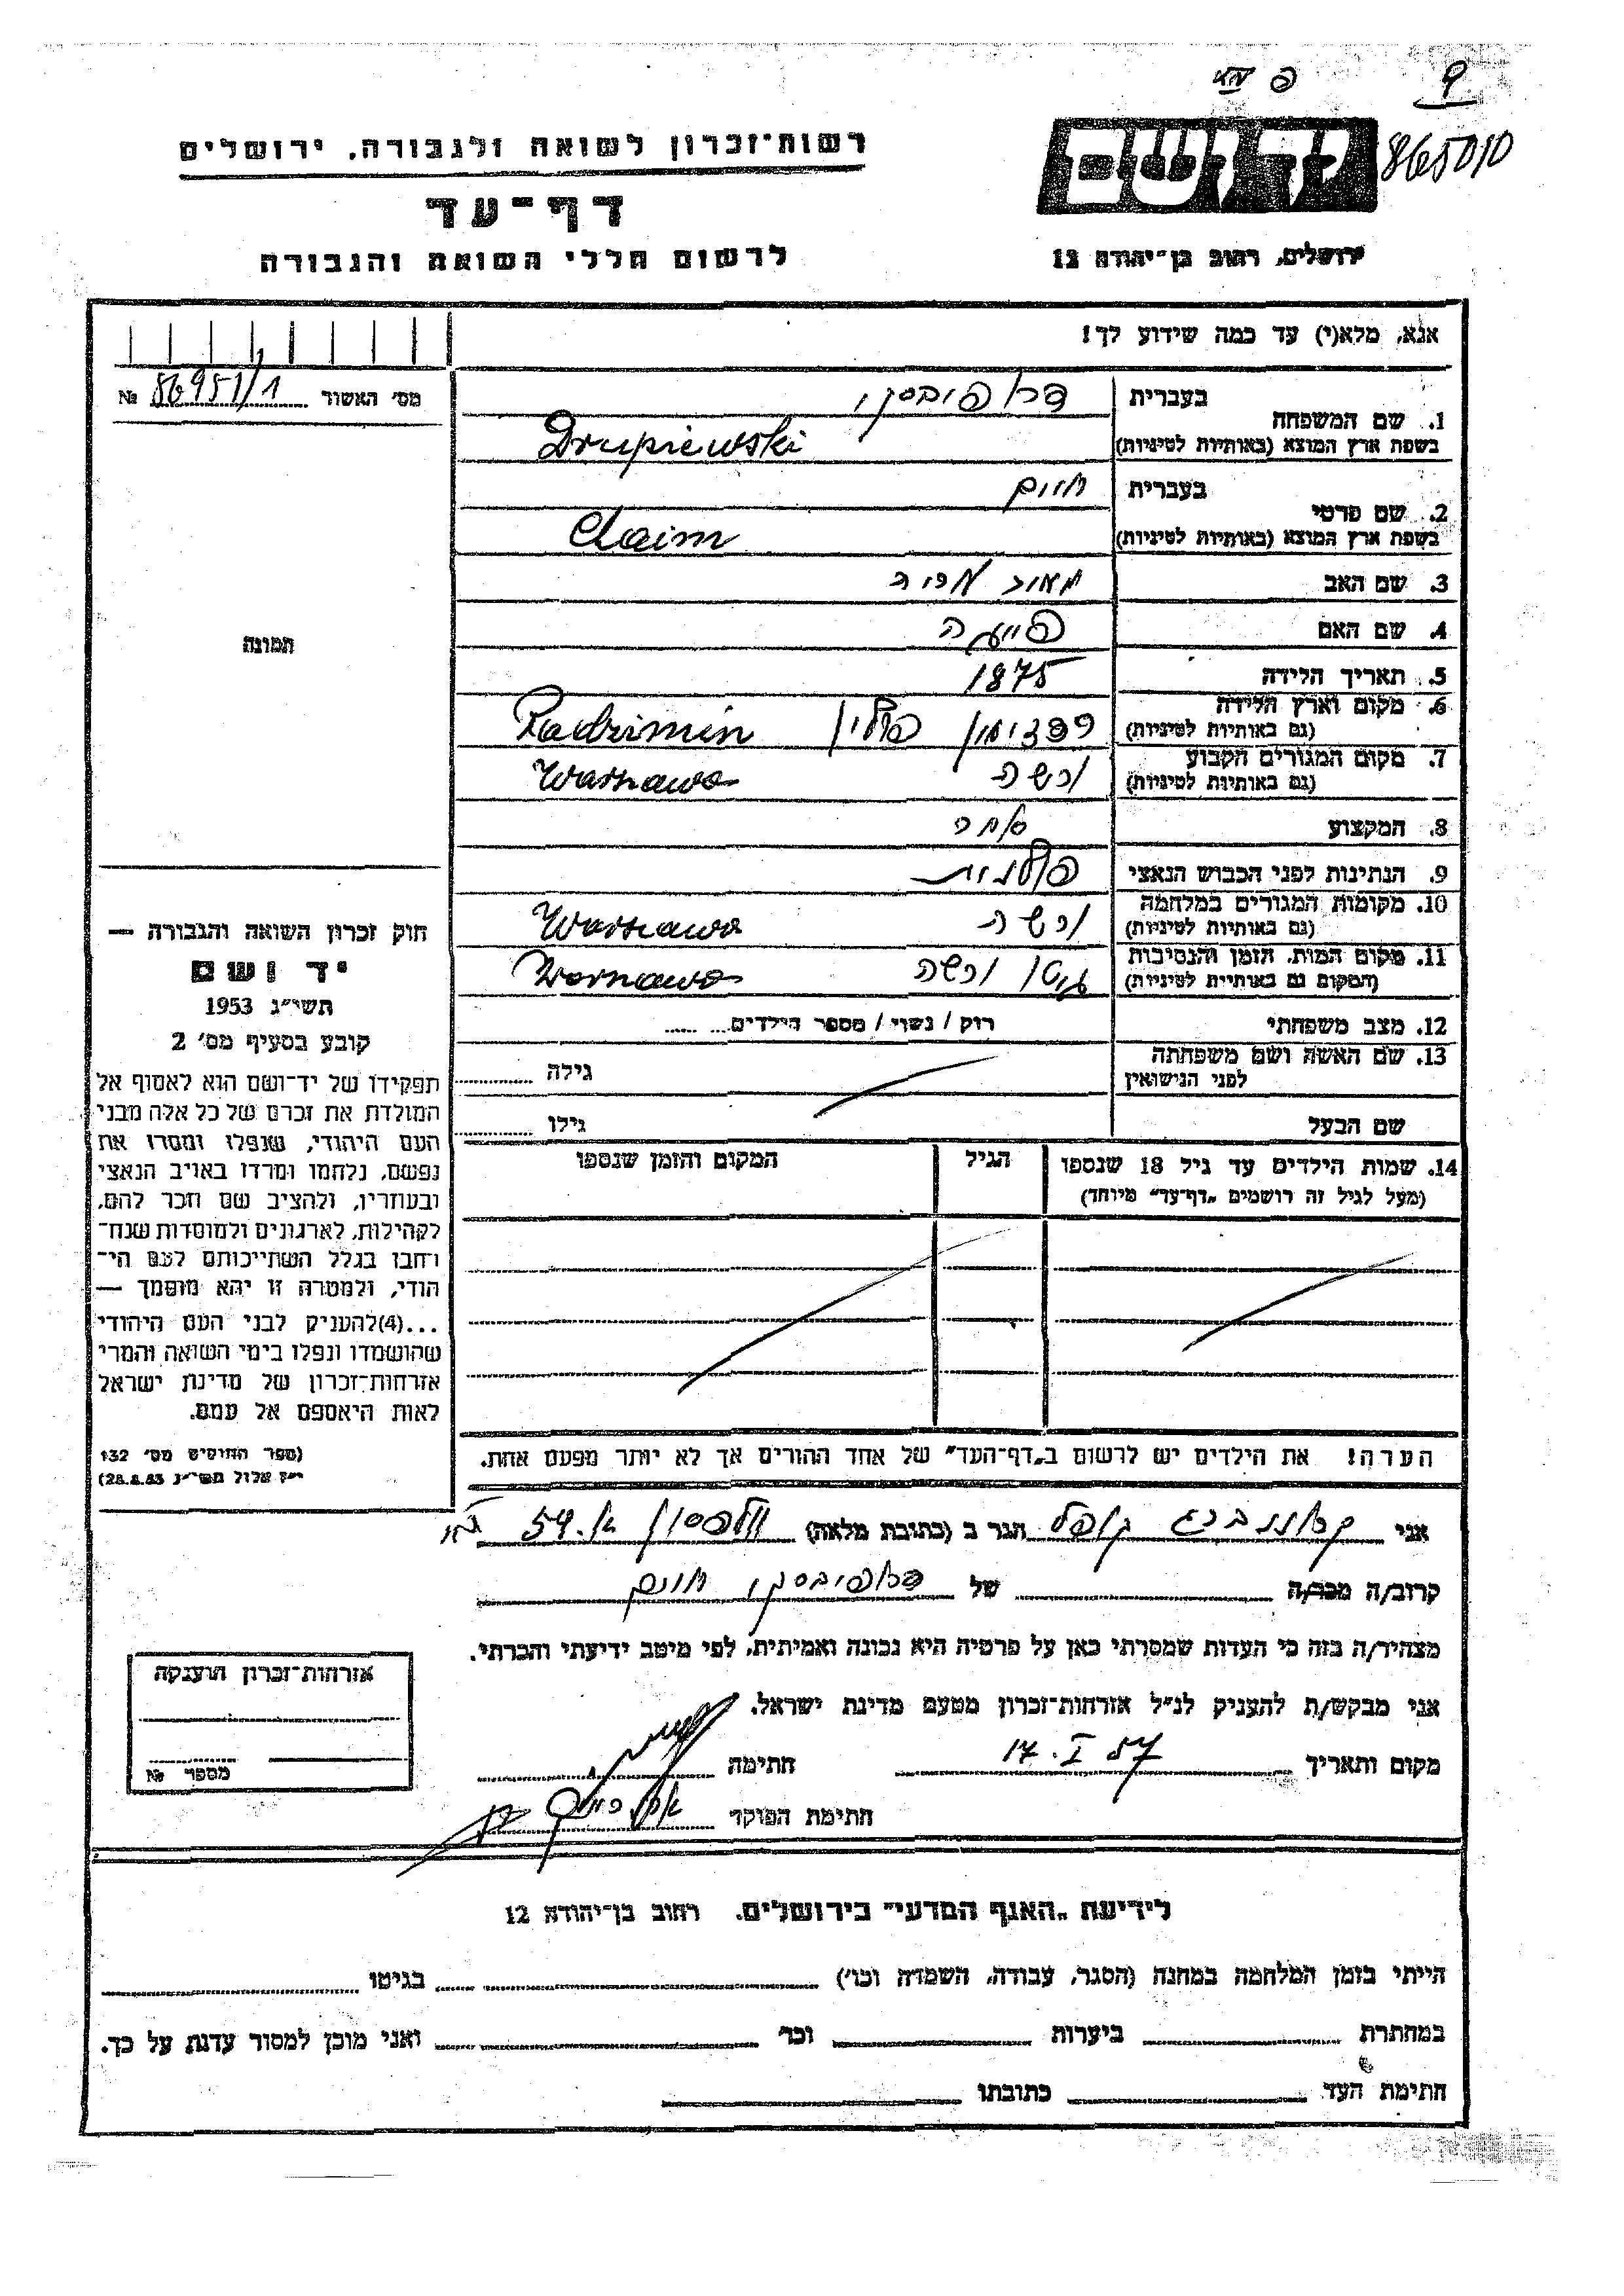 865010
רשות־זכרון לשואה ולגבורה, ירושלים
יד ושם
דף־עד
ירושלים, רחוב בן־יהודה 12
לרשום חללי השואה והגבורה
אנא, מלא(י) עד כמה שידוע לך!
מס׳ האשור 86951/1 №
1. שם המשפחה
בעברית
בשפת ארץ המוצא (באותיות לטיניות) Drupiewski
2. שם פרטי
בעברית חיים
בשפת ארץ המוצא (באותיות לטיניות) Chaim
3. שם האב מאיר אריה
4. שם האם
5. תאריך הלידה 1875
6. מקום וארץ הלידה פולין Radzimin
(גם באותיות לטיניות)
7. מקום המגורים הקבוע ורשה Warszawa
(גם באותיות לטיניות)
8. המקצוע סוחר
9. הנתינות לפני הכבוש הנאצי פולנית
10. מקומות המגורים במלחמה ורשה Warszawa
(גם באותיות לטיניות)
11. מקום המות, הזמן והנסיבות גיטו ורשה Warszawa
(המקום גם באותיות לטיניות)
12. מצב משפחתי רוק / נשוי / מספר הילדים
13. שם האשה ושם משפחתה
לפני הנישואין
גילה
שם הבעל גילו
14. שמות הילדים עד גיל 18 שנספו הגיל המקום והזמן שנספו
(מעל לגיל זה רושמים „דף־עד״ מיוחד)
הערה! את הילדים יש לרשום ב„דף־העד״ של אחד ההורים אך לא יותר מפעם אחת.
תמונה
חוק זכרון השואה והגבורה —
יד ושם
תשי״ג 1953
קובע בסעיף מס׳ 2
תפקידו של יד־ושם הוא לאסוף אל
המולדת את זכרם של כל אלה מבני
העם היהודי, שנפלו ומסרו את
נפשם, נלחמו ומרדו באויב הנאצי
ובעוזריו, ולהציב שם וזכר להם,
לקהילות, לארגונים ולמוסדות שנח־
רחבו בגלל השתייכותם לעם הי־
הודי, ולמטרה זו יהא מוסמך —
...(4)להעניק לבני העם היהודי
שהושמדו ונפלו בימי השואה והמרי
אזרחות־זכרון של מדינת ישראל
לאות היאספם אל עמם.
(ספר החוקים מס׳ 132
י״ז אלול תשי״ג 28.8.53)
אני קופל הגר ב (כתובת מלאה) וולפסון 54
קרוב/ה מכר/ה של חיים
מצהיר/ה בזה כי העדות שמסרתי כאן על פרטיה היא נכונה ואמיתית, לפי מיטב ידיעתי והכרתי.
אני מבקש/ת להעניק לנ״ל אזרחות־זכרון מטעם מדינת ישראל.
מקום ותאריך 17. I 57 חתימה
חתימת הפוקד
אזרחות־זכרון הוענקה
מספר №
לידיעת „האגף המדעי״ בירושלים. רחוב בן־יהודה 12
הייתי בזמן המלחמה במחנה (הסגר, עבודה, השמדה וכו׳) בגיטו
במחתרת ביערות וכו׳ ואני מוכן למסור עדות על כך.
חתימת העד כתובתו